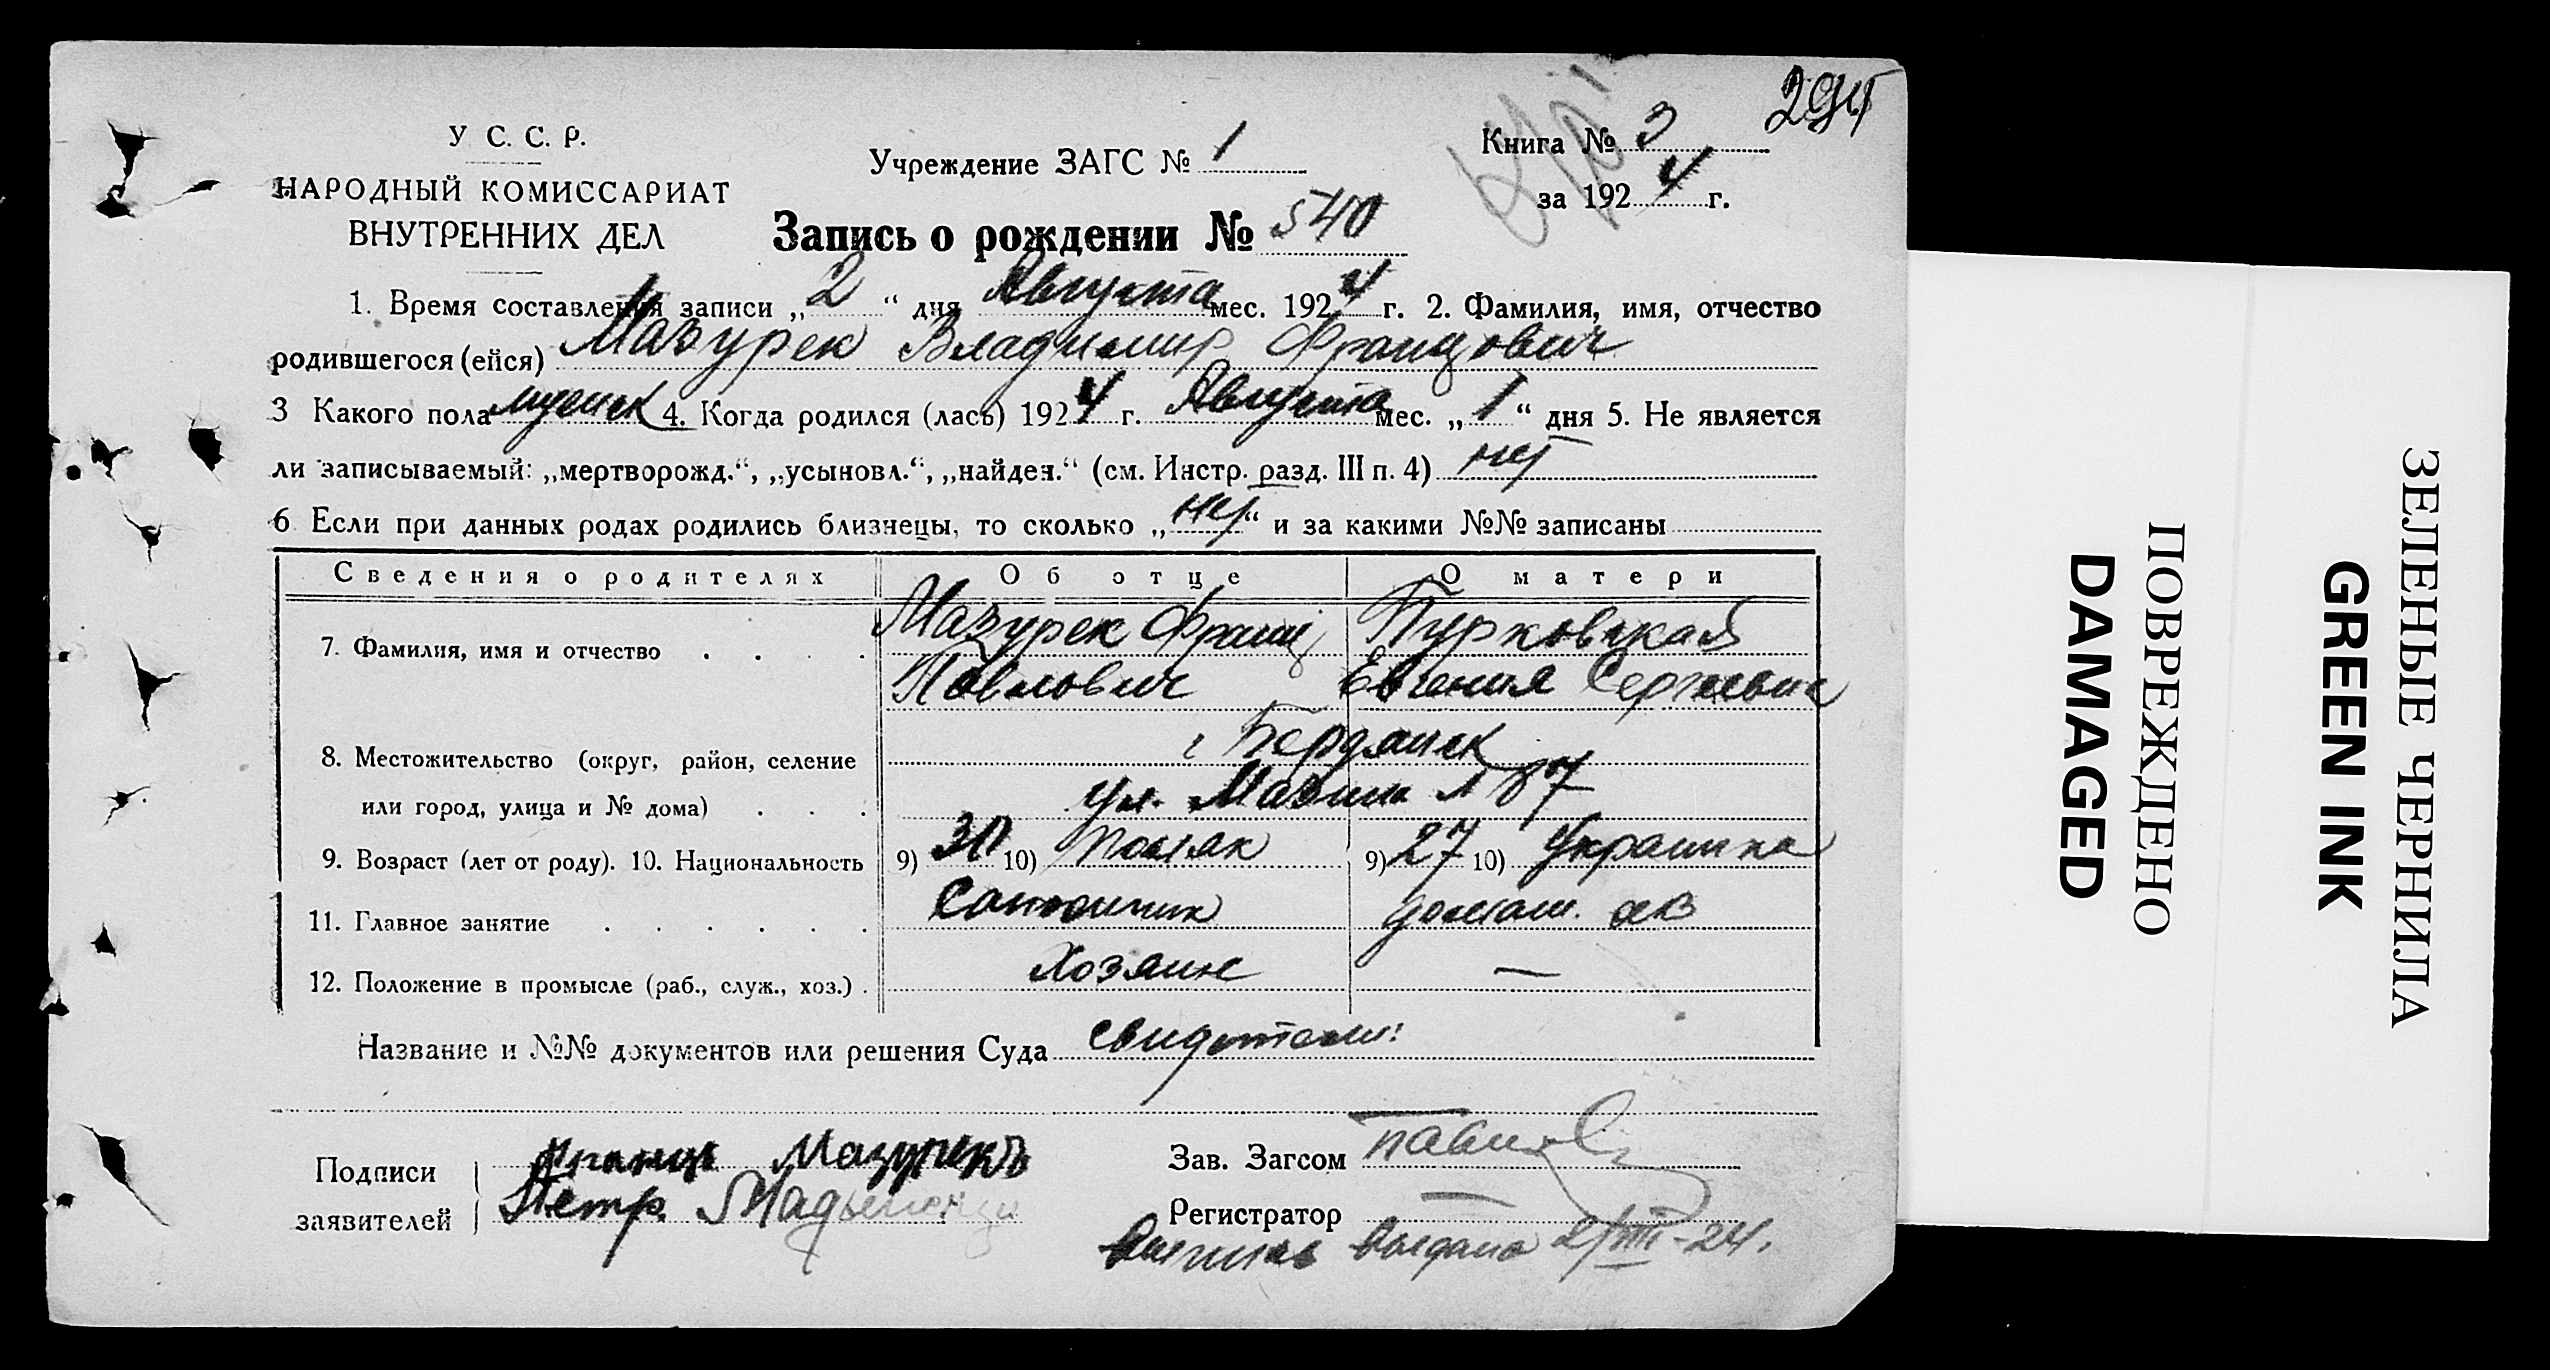 294
У С. С. Р.
НАРОДНЫЙ КОМИССАРИАТ
ВНУТРЕННИХ ДЕЛ
Учреждение ЗАГС № 1
Книга № 3
за 1924 г.
Запись о рождении № 540
1. Время составления записи „2“ дня Августа мес. 1924 г. 2. Фамилия, имя, отчество
родившегося (ейся) Мазурек Владимир Францович
3 Какого пола мужск 4. Когда родился (лась) 1924 г. Августа мес. „1“ дня 5. Не является
ли записываемый: „мертворожд.“, „усыновл.“, „найден.“ (см. Инстр. разд. III п. 4) нет
6 Если при данных родах родились близнецы, то сколько „нет“ и за какими №№ записаны
Сведения о родителях Об отце О матери
7. Фамилия, имя и отчество Мазурек Франц Пурковская
Павлович Евгения Сергеевна
8. Местожительство (округ, район, селение г Бердянск
или город, улица и № дома) ул. 87
9. Возраст (лет от роду). 10. Национальность 9) 30 10) поляк 9) 27 10) Украинка
11. Главное занятие домаш. хоз
12. Положение в промысле (раб., служ., хоз.) Хозяин —
Название и №№ документов или решения Суда свидетели:
Подписи заявителей Францъ Мазурекъ
Петр.
Зав. Загсом
Регистратор
Выпись выдана 2/VIII-24.
ПОВРЕЖДЕНО
DAMAGED
ЗЕЛЕНЫЕ ЧЕРНИЛА
GREEN INK